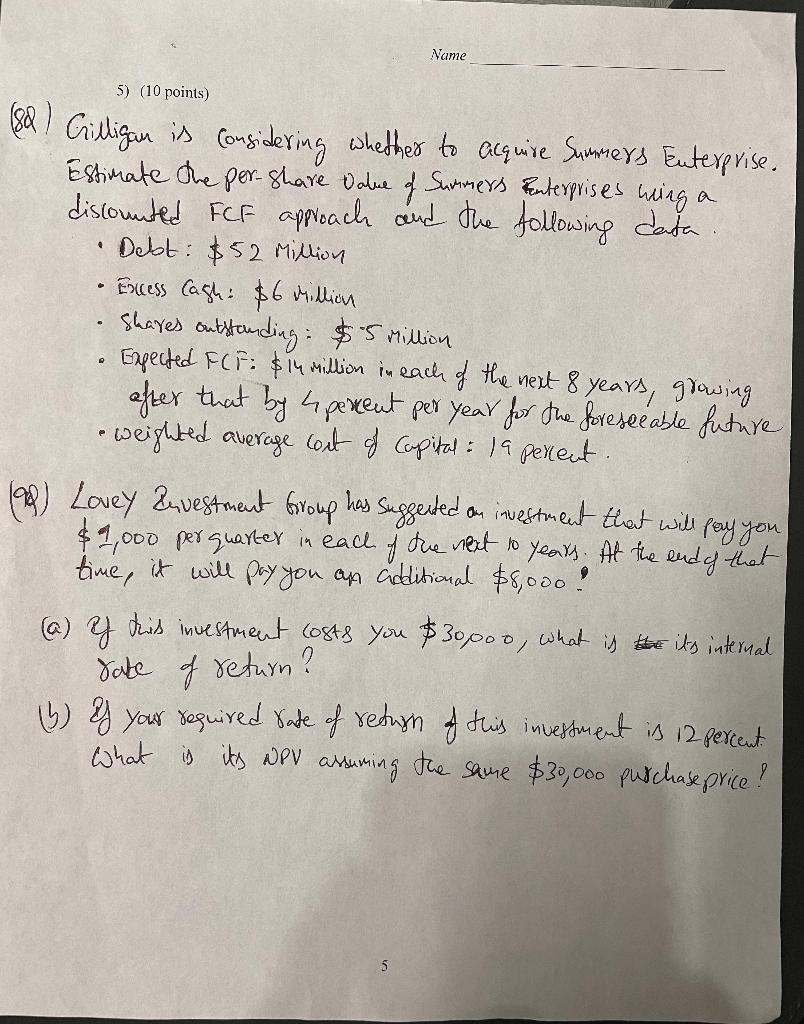 Name
5) (10 points)
(8Q) Gilligan is Considering whether to acquire Summers Enterprise.
Estimate the per-share value of Summers Enterprises using a
discounted FCF approach and the following data.
• Debt: $52 Million
• Excess Cash: $6 Million
• Shares outstanding: $ 5 Million
• Expected FCF: $14 million in each of the next 8 years, growing
after that by 4 percent per year for the foreseeable future
• weighted average cost of capital: 19 percent.
(9Q) Lovey Investment Group has suggested an investment that will pay you
$1,000 per quarter in each of the next 10 years. At the end of that
time, it will pay you an additional $8,000?
(a) If this investment costs you $30,000, what is its internal
rate of return?
(b) If your required rate of return of this investment is 12 percent.
What is its NPV assuming the same $30,000 purchase price?
5